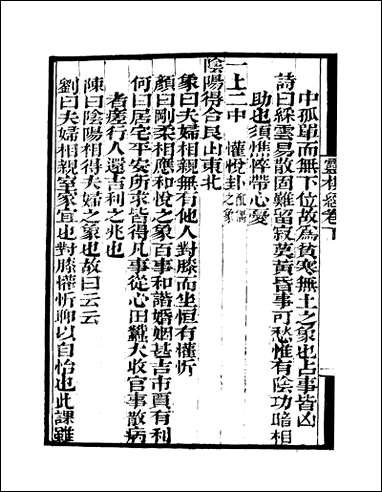 靈棋經卷下
中孤單而無下位故為貧寒無土之象也占事皆凶
詩曰綵雲易散固難留寂莫黃昏事可愁惟有陰功暗相
助也須憔悴帶心憂
一上二中　懽悅卦　之象
陰陽得合艮山東北
象曰夫婦相親無有他人對膝而坐恒有懽忻
顏曰剛柔相應和悅之象百事和諧婚姻甚吉市賈有利
何曰居宅平安所求皆得凡事從心田蠶大收官事散病
者瘥行人還吉利之兆也
陳曰陰陽相得夫婦之象也故曰云云
劉曰夫婦相親室家宜也對膝懽忻聊以自怡也此課雖